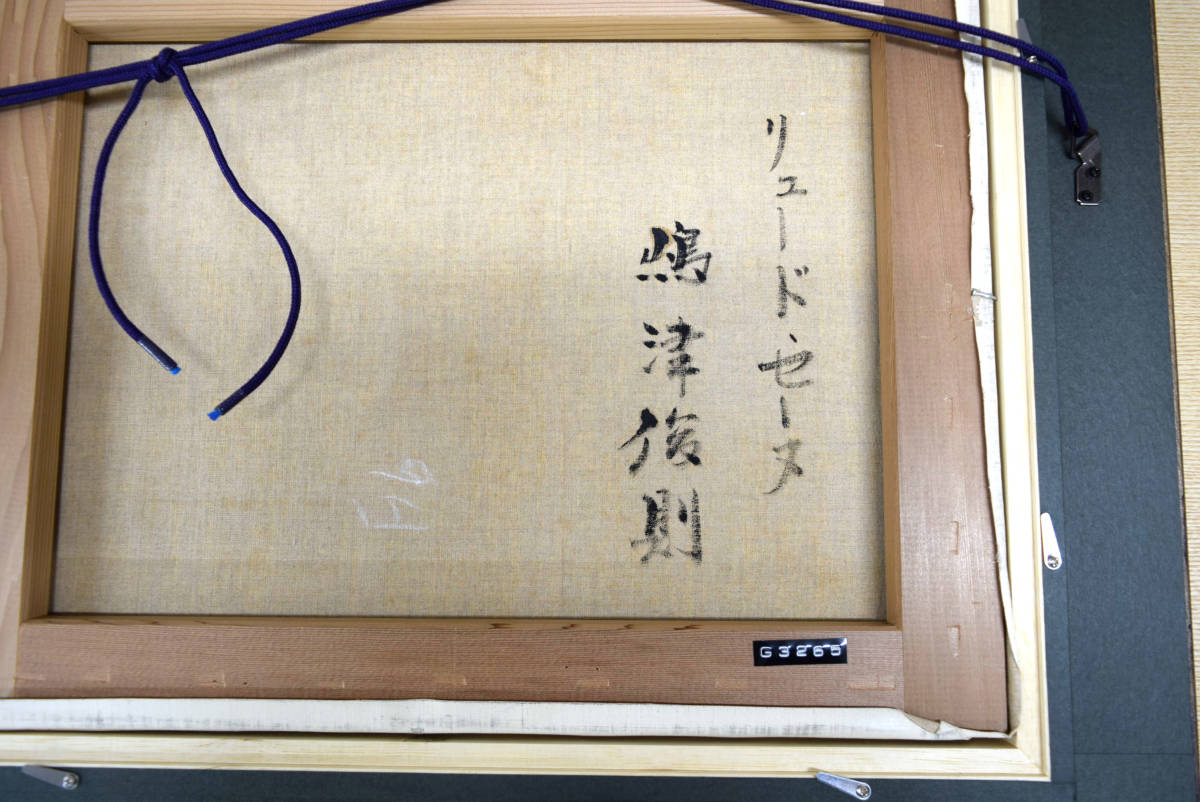 リュードセーヌ
嶋津俊則
F6
G3265